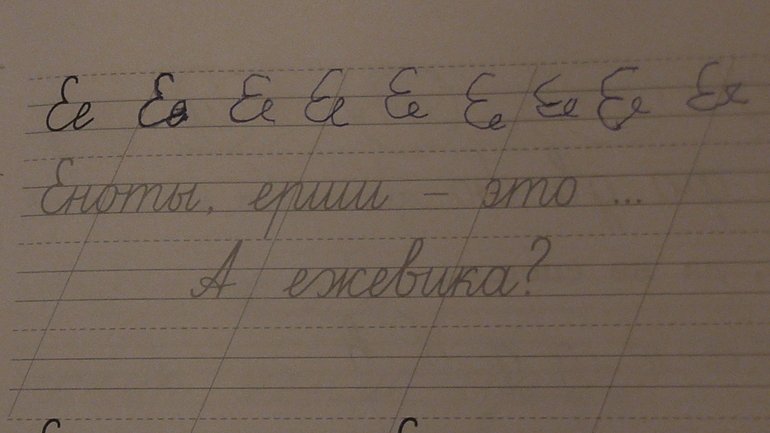 Ее Ее Ее Ее Ее Ее Ее Ее Ее
Еноты, ерши – это ...
А ежевика?